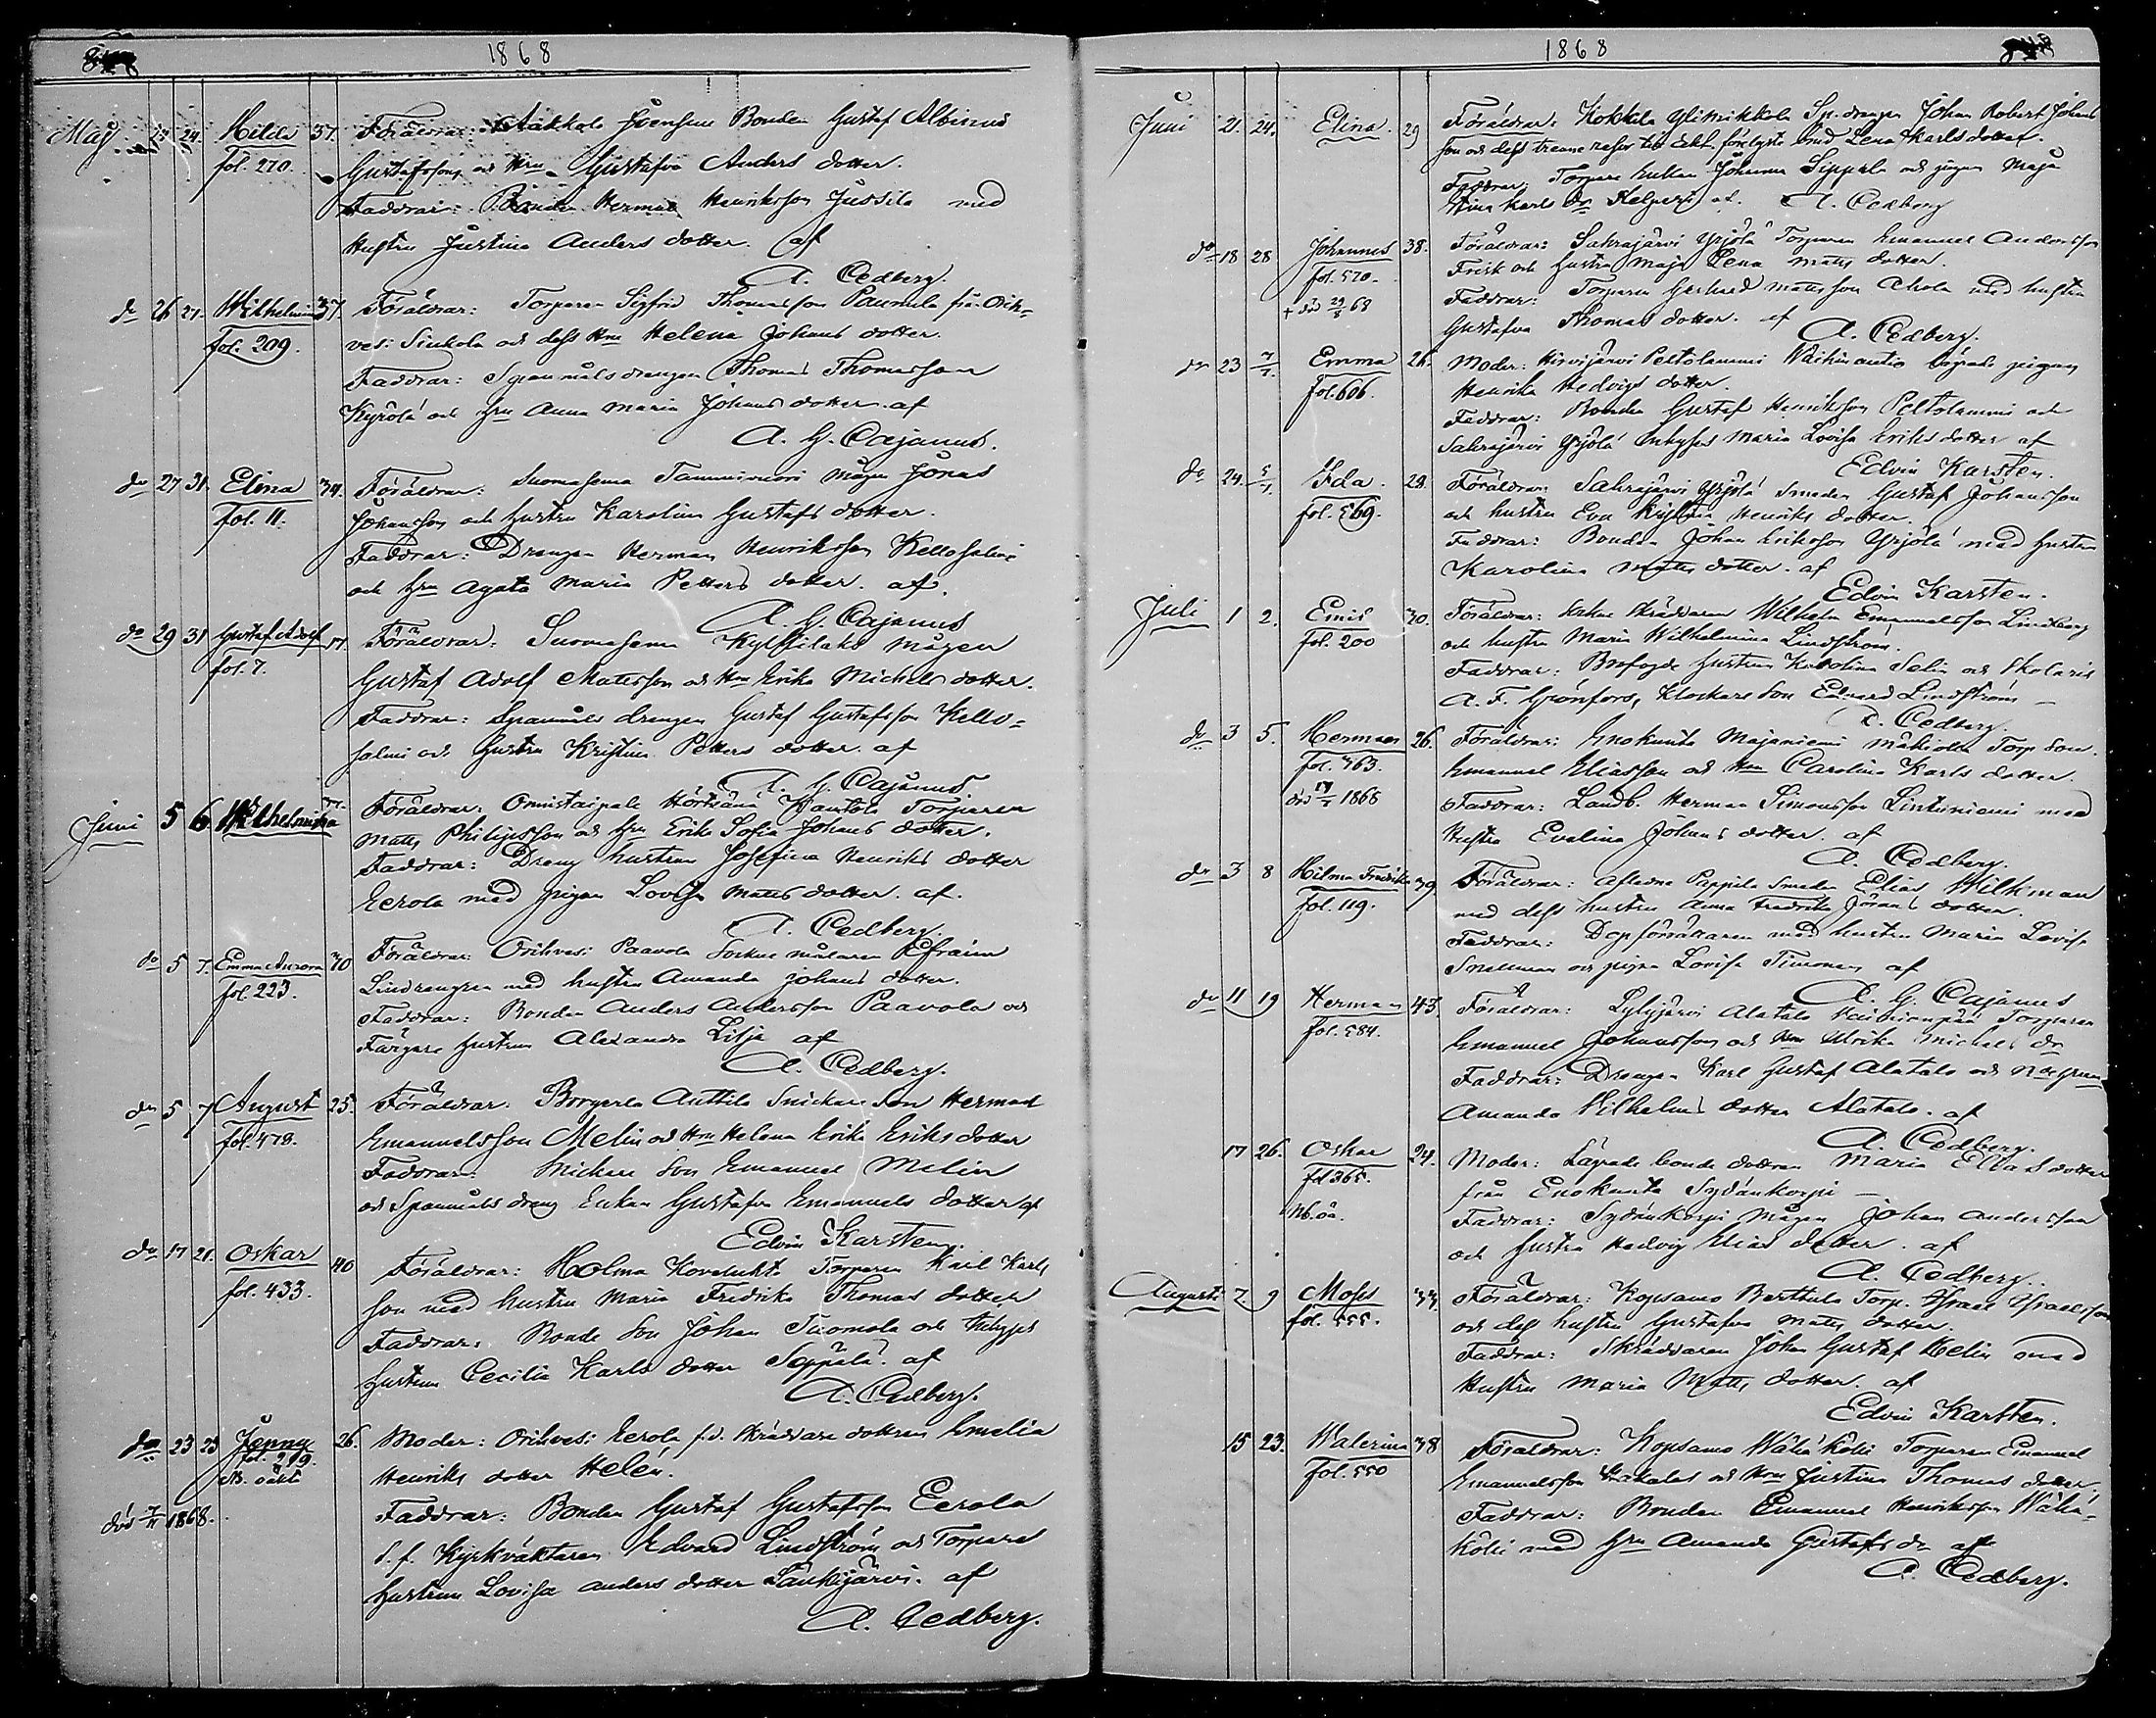 1868
Maj 24. Hilda 37. Föräldrar: Bonden Gustaf Albinus
fol. 270. Gustafsson och Hru Gustafva Anders dotter.
Faddrar: Bonden Herman Henriksson Jussila med
Hustru Justina Anders dotter. af
A. Cedberg.
do 26 27. Wilhelmina 37. Föräldrar: Torparen Sigfrid Thomasson Paunula från Orih-
fol. 209. vesi Sinkola och dess Hru Helena Johans dotter.
Faddrar: Spanmålsdrengen Thomas Thomasson
Kyrölä och hru Anna Maria Johans dotter. af
A. G. Cajanus.
do 27 31. Elina 34. Föräldrar: Suomasema Tammivuori Mågen Jonas
fol. 11. Johansson och hustru Karolina Gustafs dotter.
Faddrar: Drengen Herman Henriksson Kellosalmi
och hru Agata Maria Petters dotter. af.
A. G. Cajanus
do 29 31 Gustaf Adolf Föräldrar: Suomasema mågen
fol. 7. Gustaf Adolf Matsson och Hru Erika Michels dotter.
Faddrar: Spanmåls drengen Gustaf Gustafsson Kello-
salmi och hustru Kristina Petters dotter. af
A. G. Cajanus
Juni 5 6 Wilhelmina Föräldrar: Onnistaipale Hörtsänä Torparen
Matts Philipsson och hru Erika Sofia Johans dotter.
Faddrar: Dreng hustrun Josefina Henriks dotter
Eerola med pigan Lovisa Matts dotter. af.
A. Cedberg.
do 5 7. Emma Aurora 30 Föräldrar: Orihvesi Paavola Socken målaren Efraim
fol. 223. Lindrengren med hustru Amanda Johans dotter.
Faddrar: Bonden Anders Andersson Paavola och
Färgare hustrun Alexandra Lilja af
A. Cedberg.
do 5 7 August 25. Föräldrar. Borgerla Anttila Snickare son Herman
fol. 478. Emanuelsson Melin och Hru Helena Erika Eriks dotter
Faddrar: Snickare Son Emanuel Melin
och Spanmåls dreng Enkan Gustafva Emanuels dotter af
Edvin Karsten.
do 17 21. Oskar 40 Föräldrar: Holma Torparen Karl Karls
fol. 433. son med hustru Maria Fredrika Thomas dotter
Faddrar: Bonde Son Johan Tuomola och Inhyses
hustrun Cecilia Karls dotter Seppälä. af
A. Cedberg.
do 23 23 Jenny 26. Moder: Orihvesi Eerola f.d. Skräddare dottern Emelia
fol. 219. Henriks dotter Helén.
Nb. oäkt
död 1868. Faddrar: Bonden Gustaf Gustafsson Eerola
d. f. Kyrkväktaren Edvard Lindström och Torpare
hustrun Lovisa Anders dotter Länkijärvi. af
A. Cedberg.
1868
Juni 21. 24. Elina. 29 Föräldrar: Kokkila Ylimikkola Sp. drengen Johan Robert Johans
son och dess trenne resor till äkt. förelyste brud Lena Karls dotter.
Faddrar: Torpare Enkan Johanna Sippola och pigan Maja
Stina Karls dr af. A. Cedberg
do 18 28 Johannes 38. Föräldrar: Sahrajärvi Yrjölä Torparen Emanuel Andersson
fol. 570. Frisk och hustru Maja Lena Matts dotter.
Faddrar: Torparen Gerhard Mattsson Ahola med hustru
Gustafva Thomas dotter. af
A. Cedberg.
do 23 Emma 26. Moder: Hirvijärvi Peltolammi lägrade pigan
fol. 606. Henrika Hedvigs dotter.
Faddrar: Bonden Gustaf Henriksson Peltolammi och
Sahrajärvi Yrjölä Inhyses Maria Lovisa Eriks dotter af
Edvin Karsten.
do 24. Ida. 29. Föräldrar: Sahrajärvi Yrjölä Smeden Gustaf Johansson
fol. 569. och hustru Eva Kristina Henriks dotter.
Faddrar: Bonden Johan Eriksson Yrjölä med hustru
Karolina Matts dotter. af
Edvin Karsten.
Juli 1 2. Emil 30. Föräldrar: Skräddaren Wilhelm Emanuelsson Lindberg
fol. 200 och hustru Maria Wilhelmina Lindström.
Faddrar: Brofogde hustrun Karolina Salin och Skolaris
A. F. Grönfors, Klockare Son Edvard Lindström
A. Cedberg.
do 3 5. Herman 26. Föräldrar: Enokunta Majaniemi Mäkiolta Torp Son
fol. 363. Emanuel Eliasson och Hru Carolina Karls dotter.
död 1868 Faddrar: Landb. Herman Simonsson Lintuniemi med
Hustru Evelina Johans dotter. af
A. Cedberg.
do 3 8 Hilma Fredrika 39 Föräldrar: Aflidne Pappila Smeden Elias Wilkman
fol. 119. med dess hustru Anna Fredrika Jörans dotter.
Faddrar: Dopförrättaren med hustru Maria Lovisa
Snellman och pigan Lovisa Timonen af
A. G. Cajanus
do 11 19 Herman 43 Föräldrar: Lylyjärvi Alatalo Torparen
fol. 584. Emanuel Johansson och Hru Ulrika Michels dr
Faddrar: Drengen Karl Gustaf Alatalo och
Amanda Vilhelms dotter Alatalo. af
A. Cedberg.
17 26. Oskar 24. Moder: Lägrade bonde dottern Maria Elias dotter
fol 365. från Enokunta Sydänkorpi
Nb. oä. Faddrar: Sydänkorpi Mågen Johan Andersson
och hustru Hedvig Elias dotter. af
A. Cedberg.
August: 7 9 Moses 33 Föräldrar: Kopsamo Berttula Torp. Israel Israelsson
fol. 555. och dess hustru Gustafva Matts dotter.
Faddrar: Skräddaren Johan Gustaf Helin med
Hustru Maria Matts dotter. af
Edvin Karsten.
15 23. Walerina 38 Föräldrar: Kopsamo Wähäkölii Torparen Emanuel
fol. 550 Emanuelsson och Hru Justina Thomas dotter.
Faddrar: Bonden Emanuel Henriksson Wähä-
kölii med hru Amanda Gustafs dr af
A. Cedberg.